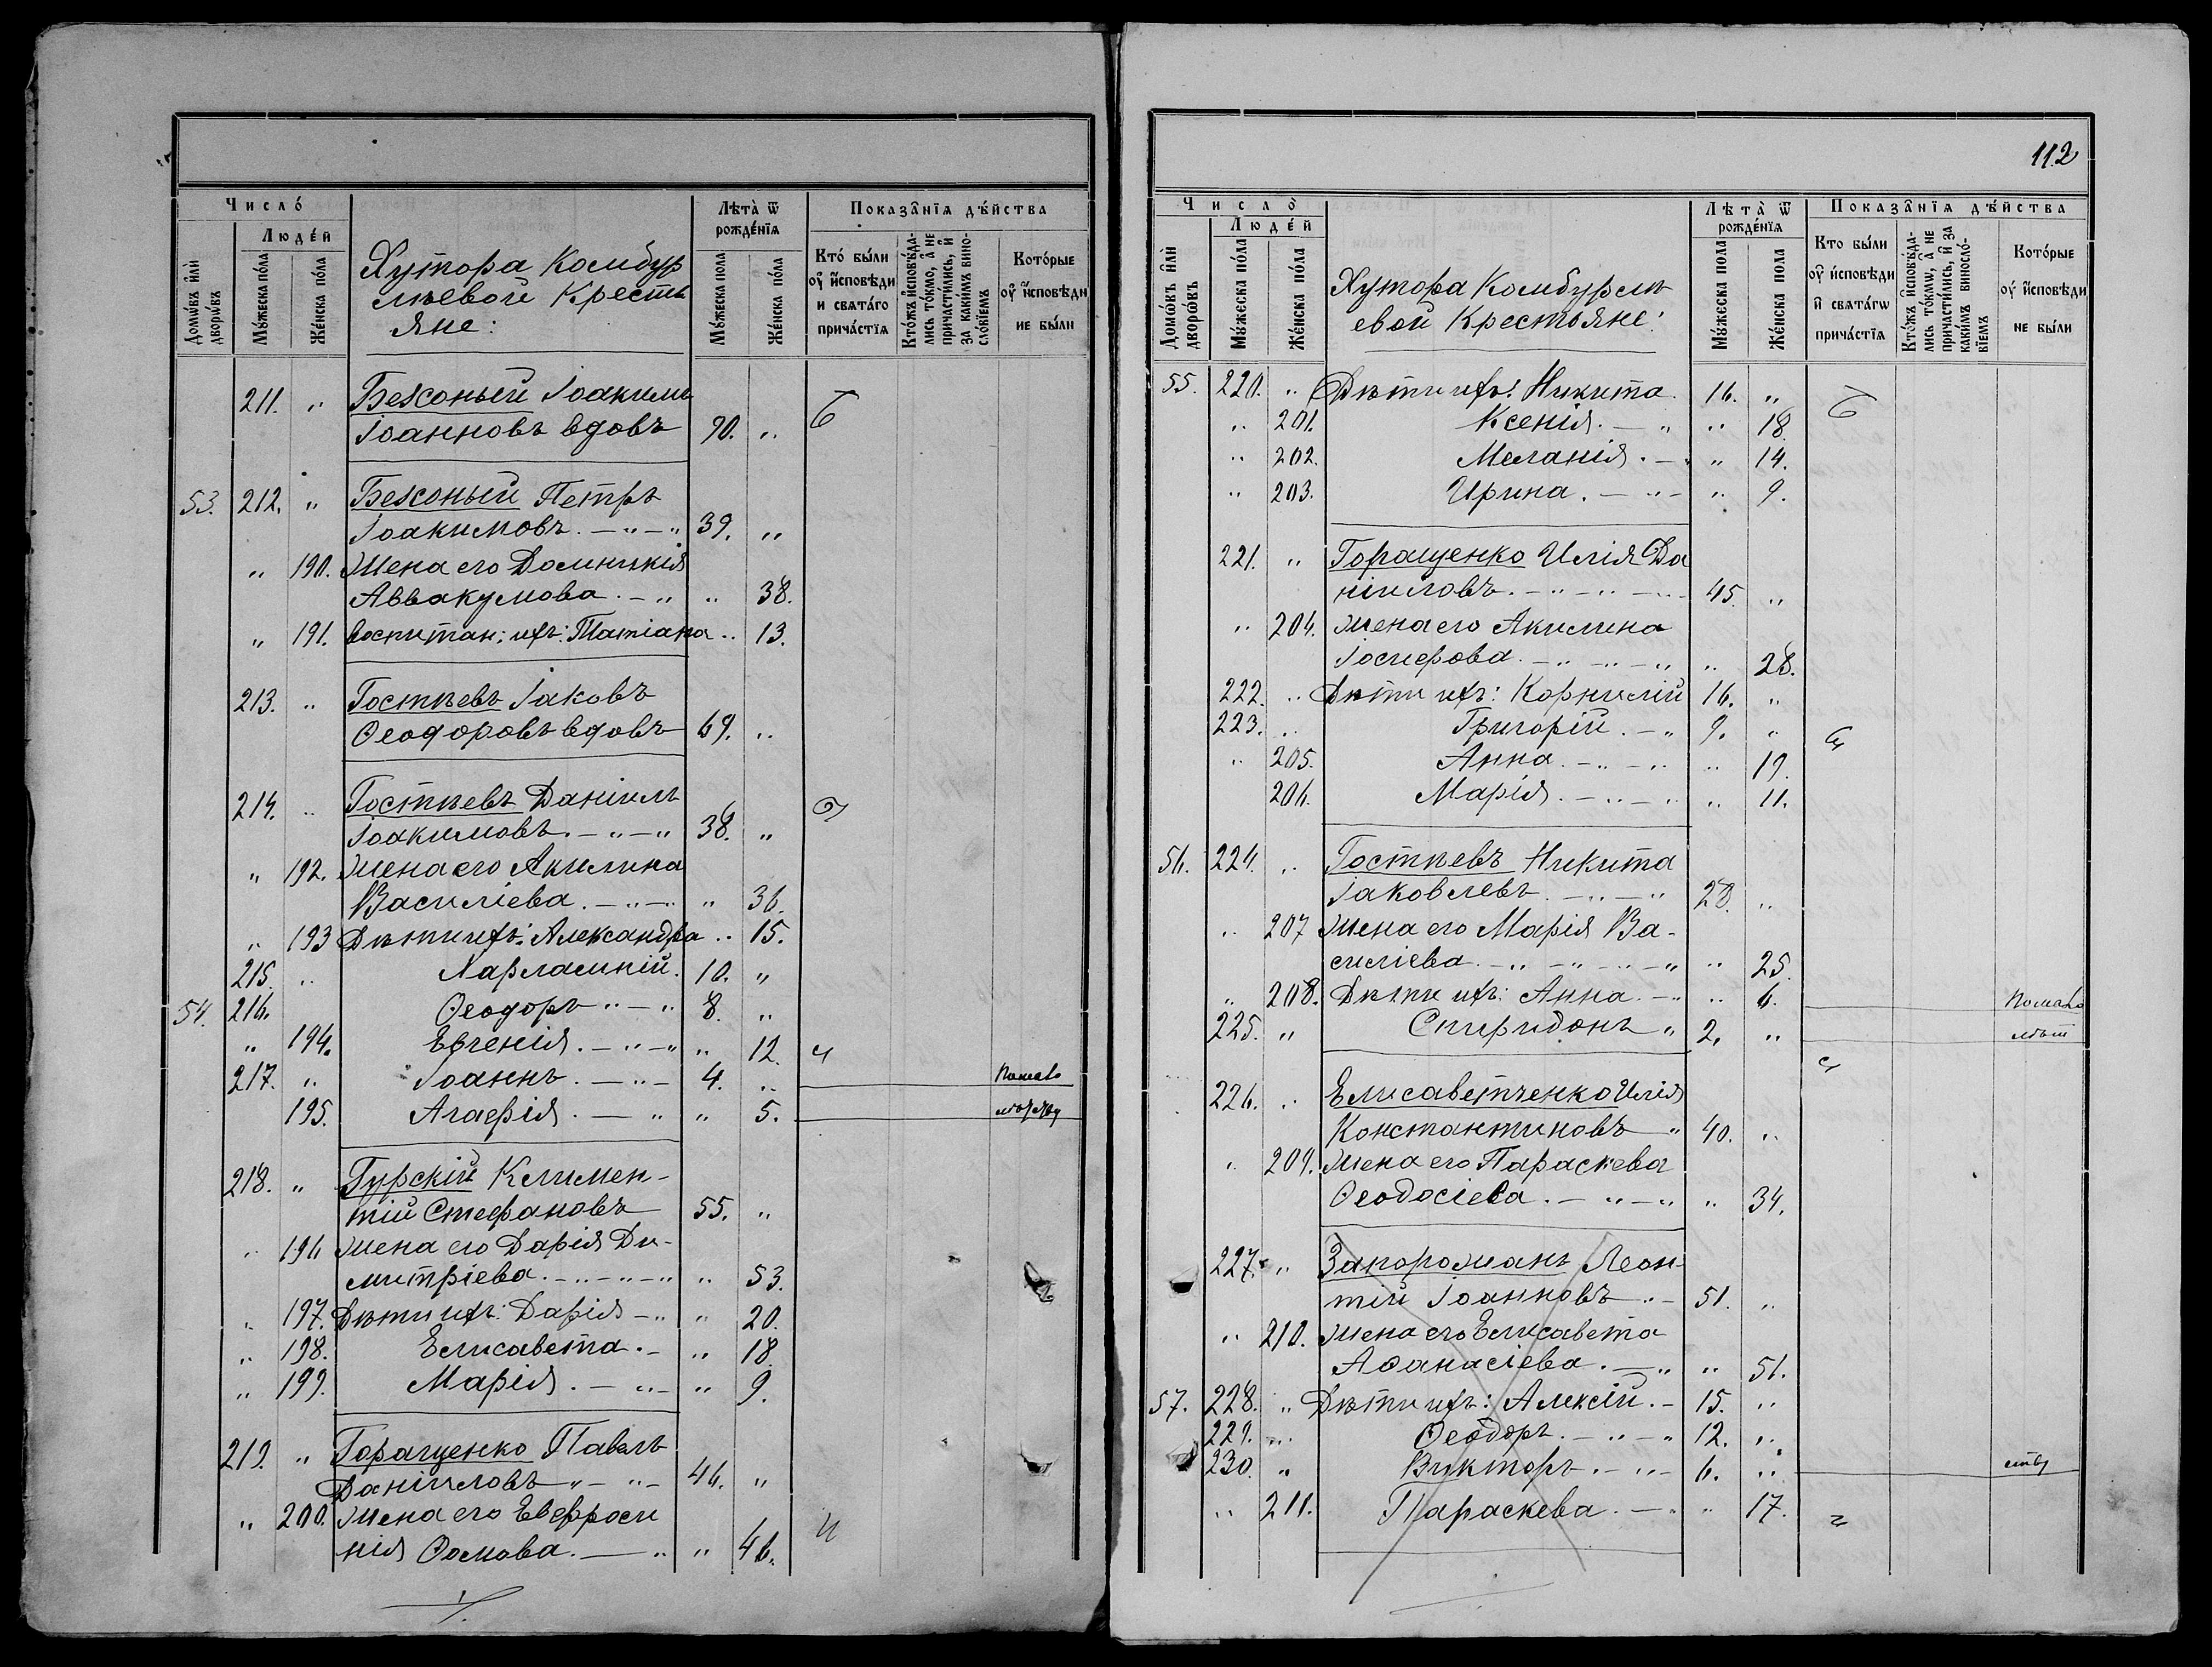 Число̀
Людéй
Домѡ́въ и҆лѝ дворѡ́въ
Мꙋ́жеска пóла
Жéнска пóла
Хутора Комбур
лѣевой Кресть
яне:
Лѣта̀ ѿ рождéнїѧ
Мꙋ́жеска пола
Жéнска пóла
Показа̑нїѧ дѣ́йства
Ктó были оу҆ и҆сповѣди и свѧтáго причáстїѧ
Ктóжъ и҆сповѣ́да-
лись тóкмо, а҆ не
причасти́лись, и҆
за какимъ вино-
слóвїемъ
Котóрые оу҆ и҆сповѣди не бы́ли
211. " Безконый Іоакимъ
Іоанновъ вдовъ 90. "
53. 212. " Безконый Петръ
Іоакимовъ. — " — " 39. "
" 190. Жена его Домникія
Аввакумова. — " " 38.
" 191. воспитан: ихъ: Татіана " 13.
213. " Гостѣевъ Іаковъ
Ѳеодоровъ вдовъ 69. "
214. " Гостѣевъ Даніилъ
Іоакимовъ. — " — " 38. "
" 192. Жена его Акилина
Василіева. — " — " " 36.
" 193 Дѣти ихъ: Александра " 15.
215. " Харлампій. 10. "
54. 216. Ѳеодоръ " — " 8. "
" 194. Евгенія. — " — " " 12.
217. " Іоаннъ. — " — 4. "
195. Агафія. — " " 5.
218. " Гурскій Климен-
тій Стефановъ 55. "
" 196 Жена его Дарія Ди-
митріева. — " — " — " " 53.
" 197. Дѣти ихъ: Дарія — " " 20.
" 198. Елисавета. — " 18.
" 199. Марія. — " — " 9.
219. " Горащенко Павелъ
Даніиловъ " — " — 46. "
" 200. Жена его Евфроси
нія Ѳомова. — " " 46.
112
Число̀
Людéй
Домóвъ и҆лѝ дворóвъ
Мꙋ́жеска пóла
Жéнска пóла
Хутора Комбурлѣ
евой Крестьяне:
Лѣта̀ ѿ рождéнїѧ
Мꙋ́жеска пола
Жéнска пола
Показа̑нїѧ дѣ́йства
Кто бы́ли оу҆ и҆сповѣди и҆ свѧтáгѡ причáстїѧ
Ктóжъ и҆сповѣ́да-
лись тóкмѡ, а҆ не
причасти́лись, и҆ за
каки́мъ винослó-
вїемъ
Котóрые оу҆ и҆сповѣди не бы́ли
55. 220. " Дѣти ихъ: Никита. 16. "
" 201. Ксенія. — " " 18.
" 202. Меланія. — " " 14.
" 203. Ирина. — " — " 9.
221. " Горащенко Илія Да
ніиловъ. — " — " — " 45. "
" 204. Жена его Акилина
Іосифова. — " — " — " " 28.
222. " Дѣти ихъ: Корнилій 16. "
223. " Григорій. — " 9. "
" 205. Анна. — " — " " 19.
206. Марія. — " — " " 11.
56. 224. " Гостѣевъ Никита
Іаковлевъ. — " — " 28. "
" 207 Жена его Марія Ва-
силіева. — " — " — " — " " 25.
" 208. Дѣти ихъ: Анна. — " " 6.
225. " Спиридонъ " 2. "
226. " Елисаветченко Илія
Константиновъ " 40. "
" 209. Жена его Параскева
Ѳеодосіева. — " — " " 34.
227. " Запорожанъ Леон-
тій Іоанновъ " — 51. "
" 210. Жена его Елисавета
Аѳанасіева. — " " 51.
57. 228. " Дѣти ихъ: Алексій. — 15. "
229. " Ѳеодоръ. — " — " 12. "
230. " Викторъ. — " — 6. "
" 211. Параскева. — " " 17.